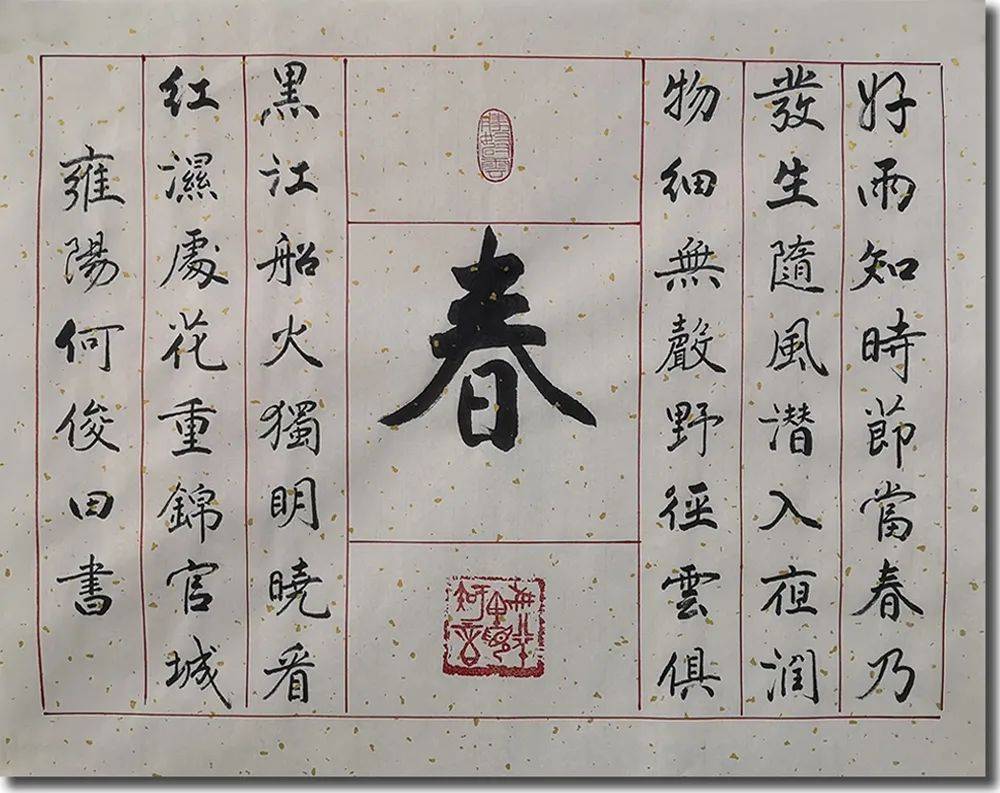 好雨知時節當春乃
發生隨風潜入夜潤
物細無聲野徑雲俱
春
黑江船火獨明曉看
紅濕處花重錦官城
雍陽何俊田書